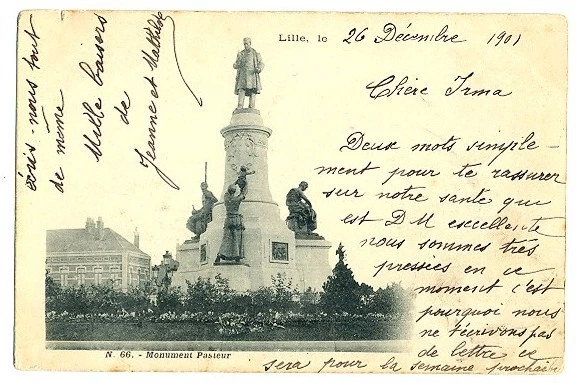 Lille, le 26 Décembre 1901
Chère Irma
Deux mots simple-
ment pour te rassurer
sur notre santé que
est DM excellente
nous sommes très
pressées en ce
moment c'est
pourquoi nous
ne t'écrivons pas
de lettre ce
sera pour la semaine prochaine
écris-nous tout
de même
Mille baisers
de
Jeanne et Mathilde
N. 66. - Monument Pasteur